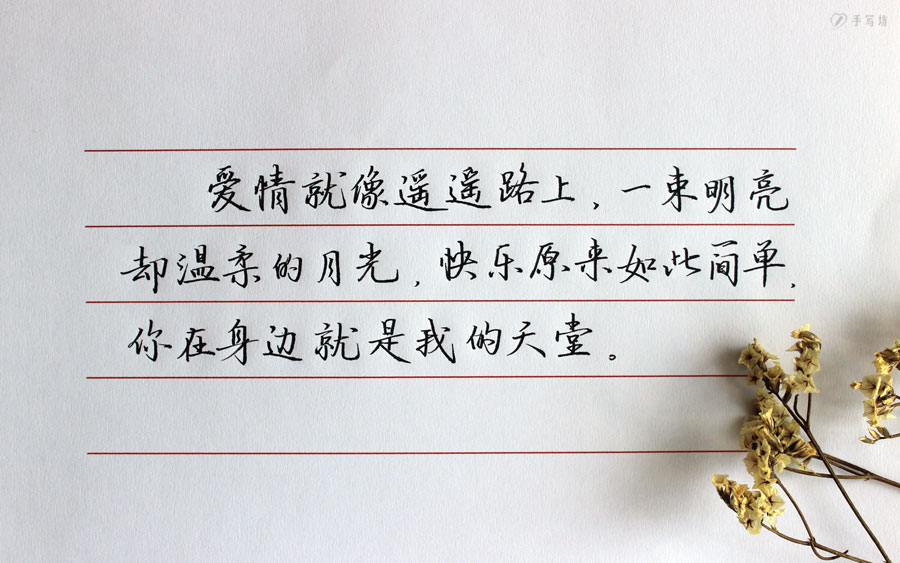 手写坊
爱情就像遥遥路上，一束明亮
却温柔的月光，快乐原来如此简单，
你在身边就是我的天堂。